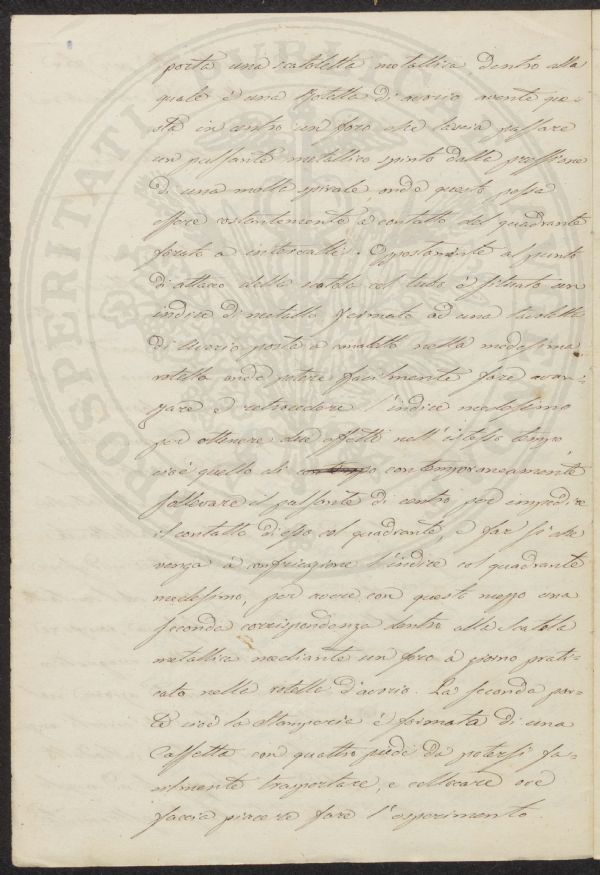 porta una scatoletta metallica dentro alla
quale è una Rotella di avorio avente que-
sta in centro un foro che lascia passare
un pulsante metallico spinto dalla pressione
di una molla spirale, onde questo possa
essere costantemente a contatto del quadrante
forato a intervalli. Oppostamente al punto
di attacco della scatola col tubo è situato un
indice di metallo fermato ad una tavoletta
di Avorio posta a canaletto nella medesima
rotella onde potere facilmente fare avan-
zare e retrocedere l'indice medesimo
per ottenere due effetti nell'istesso tempo
cioè quello di contemporaneamente
sollevare il pulsante di centro per impedire
il contatto di esso col quadrante, e far sì che
venga a confricazione l'indice col quadrante
medesimo, per avere con questo mezzo una
seconda corrispondenza dentro alla Scatola
metallica mediante un foro a giorno prati-
cato nella rotella d'avorio. La seconda par-
te cioè la Stamperia è formata di una
Cassetta con quattro piedi da potersi fa-
cilmente trasportare, e collocare ove
faccia piacere fare l'esperimento.
PROSPERITATI PUBLICAE